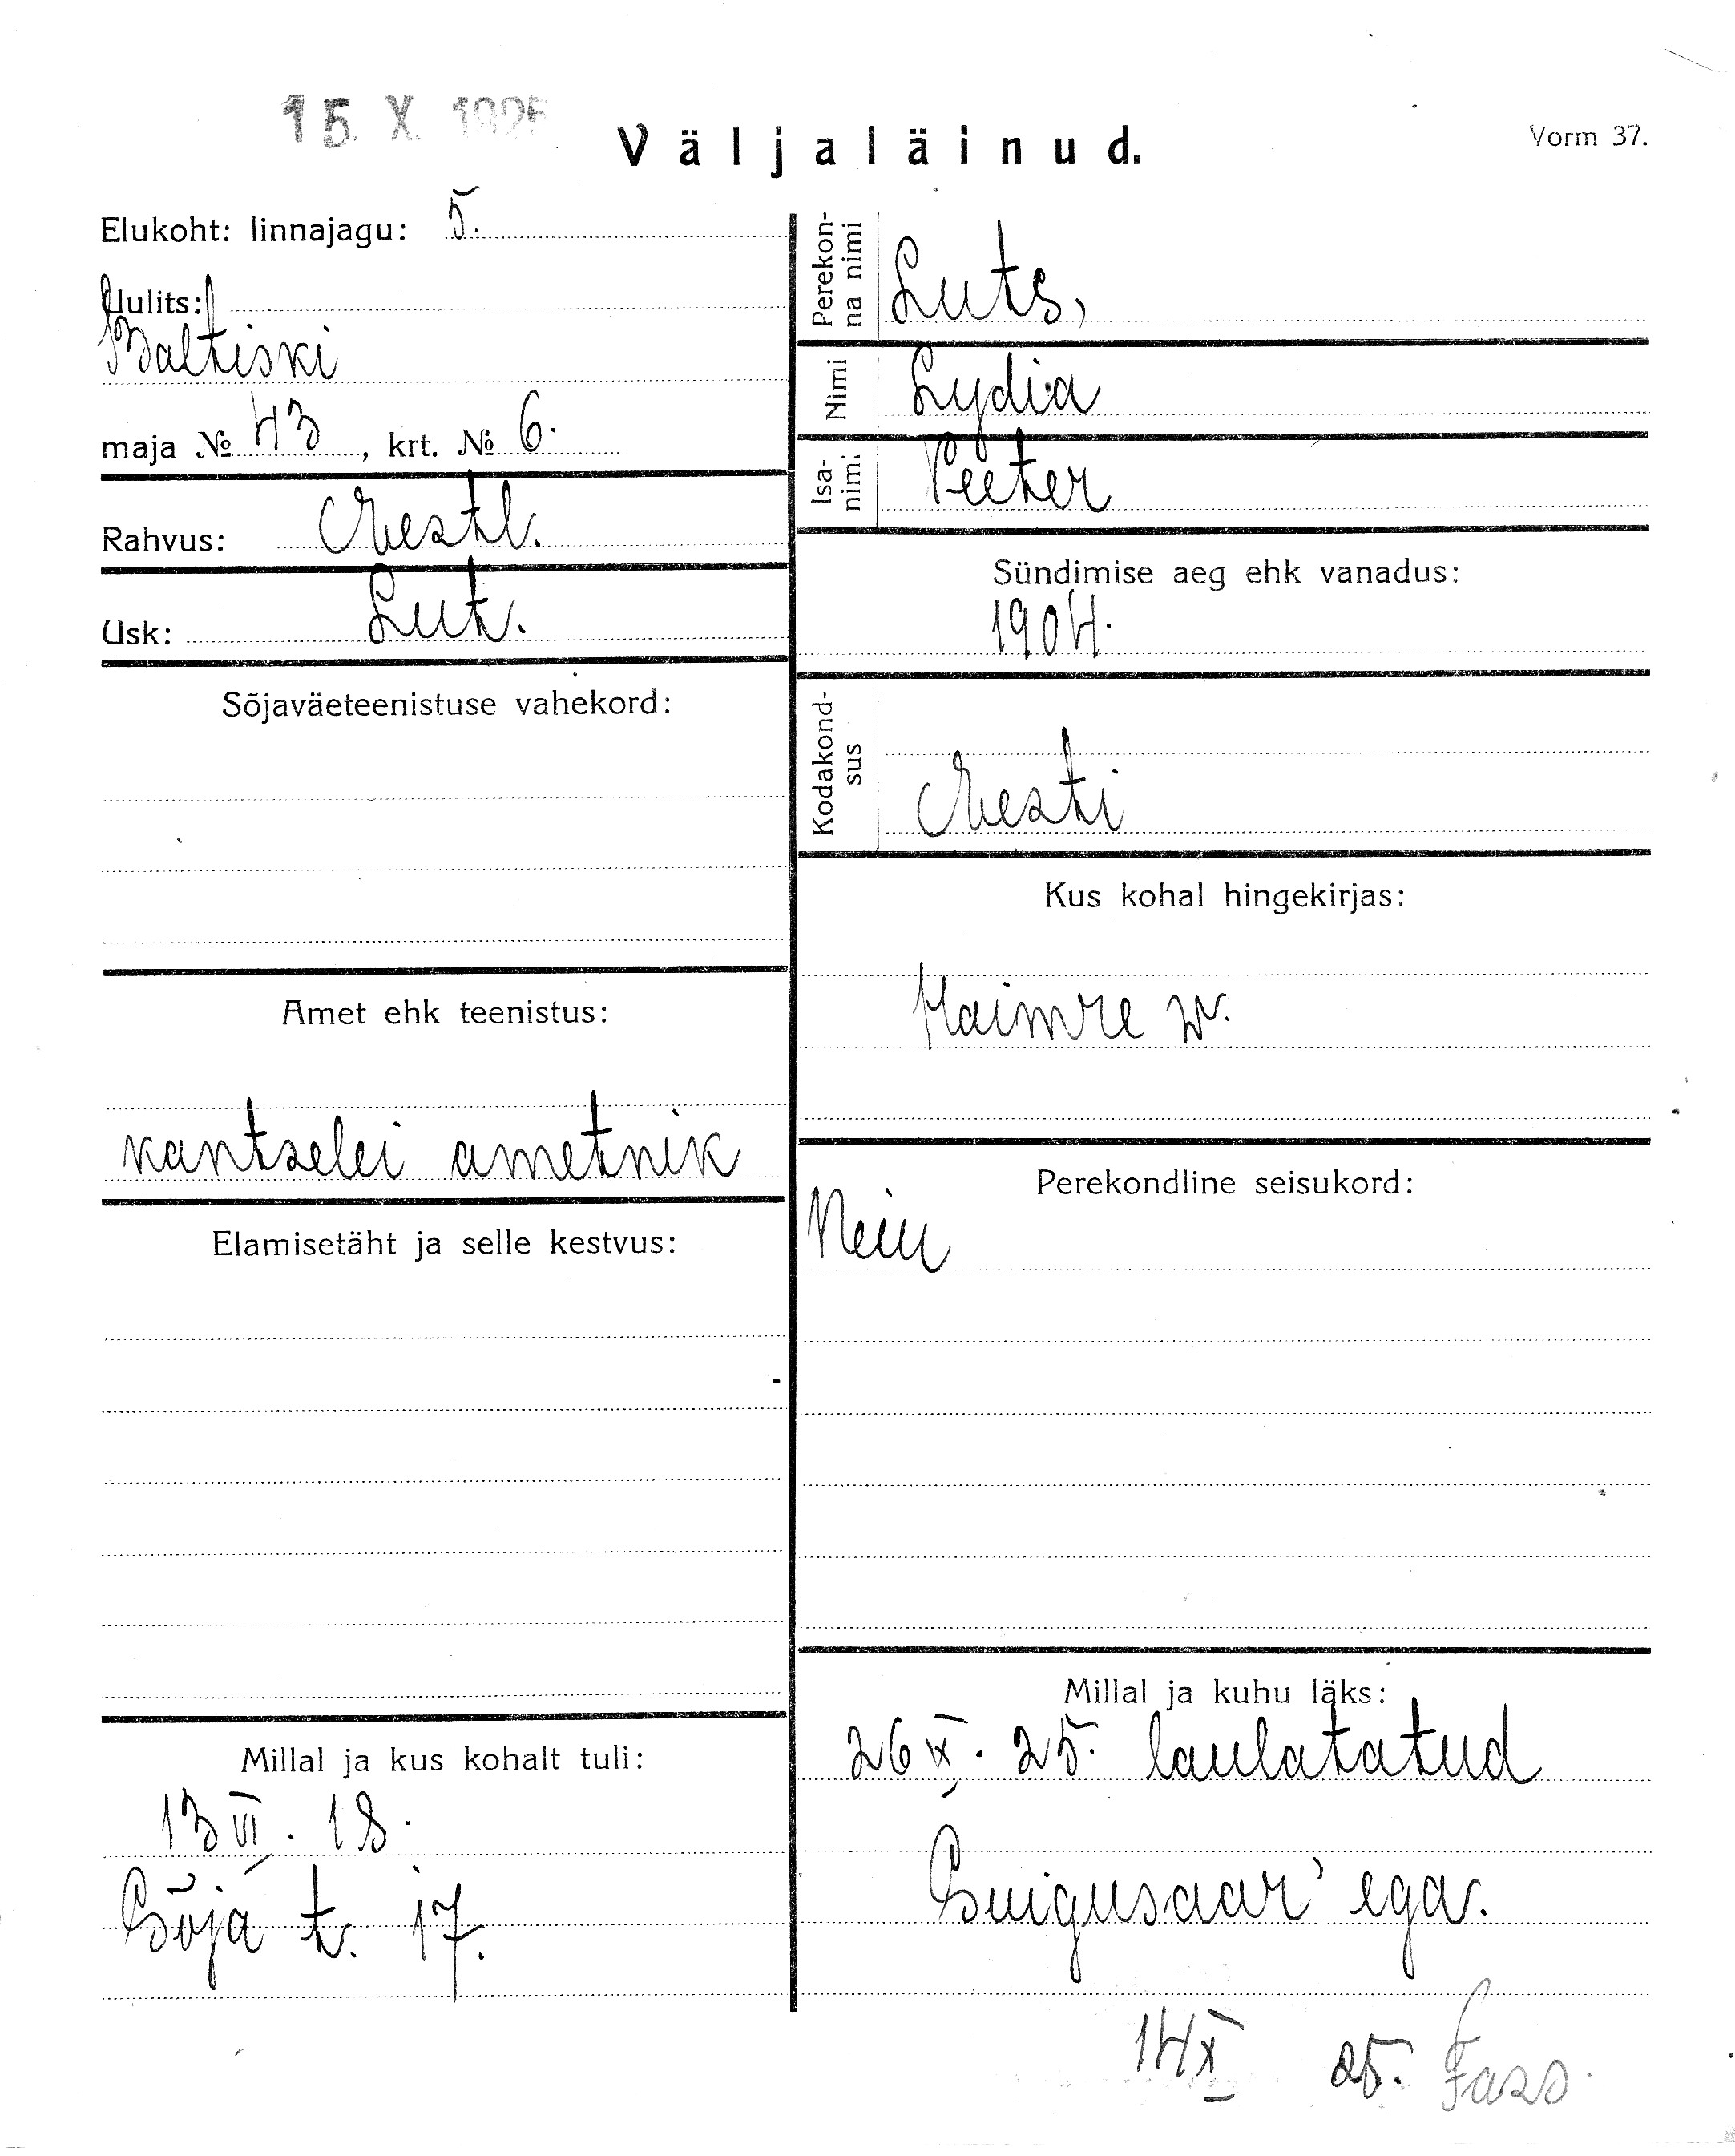 15. X. 1925
Väljaläinud.
Vorm 37.
Elukoht: linnajagu: 5.
Uulits:
Baltiski
maja № 43, krt. № 6.
Rahvus: Eestl.
Usk: Lut.
Sõjaväeteenistuse vahekord:
Amet ehk teenistus:
kantselei ametnik
Elamisetäht ja selle kestvus:
Millal ja kus kohalt tuli:
13 VI. 18.
Sõja t. 17.
Perekon-
na nimi
Luts,
Nimi Lydia
Isa-
nimi
Peeter
Sündimise aeg ehk vanadus:
1904.
Kodakond-
sus
Eesti
Kus kohal hingekirjas:
Haimre w.
Perekondline seisukord:
Neiu
Millal ja kuhu läks:
26 IX. 25. laulatatud
Suigusaar'ega.
14 X 25.